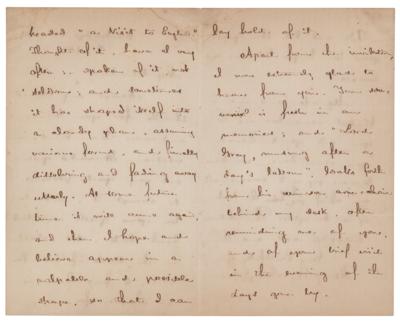 headed "a Visit to
Thought of it have I very
often; spoken of it not
seldom; and sometimes
it has shaped itself into
a cloudy plan, assuming
various forms, and finally
dissolving and fading away
utterly. At some future
time it will come again,
and then I hope and
believe appear in a
palpable and possible
shape, so that I can
lay hold of it.
Apart from the invitation,
I was extremely glad to
hear from you. Your
is fresh in our
memories; and "Lord
Gray, nursing after a
day's labour", looks forth
from his arm-chair
behind my desk, often
reminding me of you,
and of your brief visit
in the evening of the
days gone by.